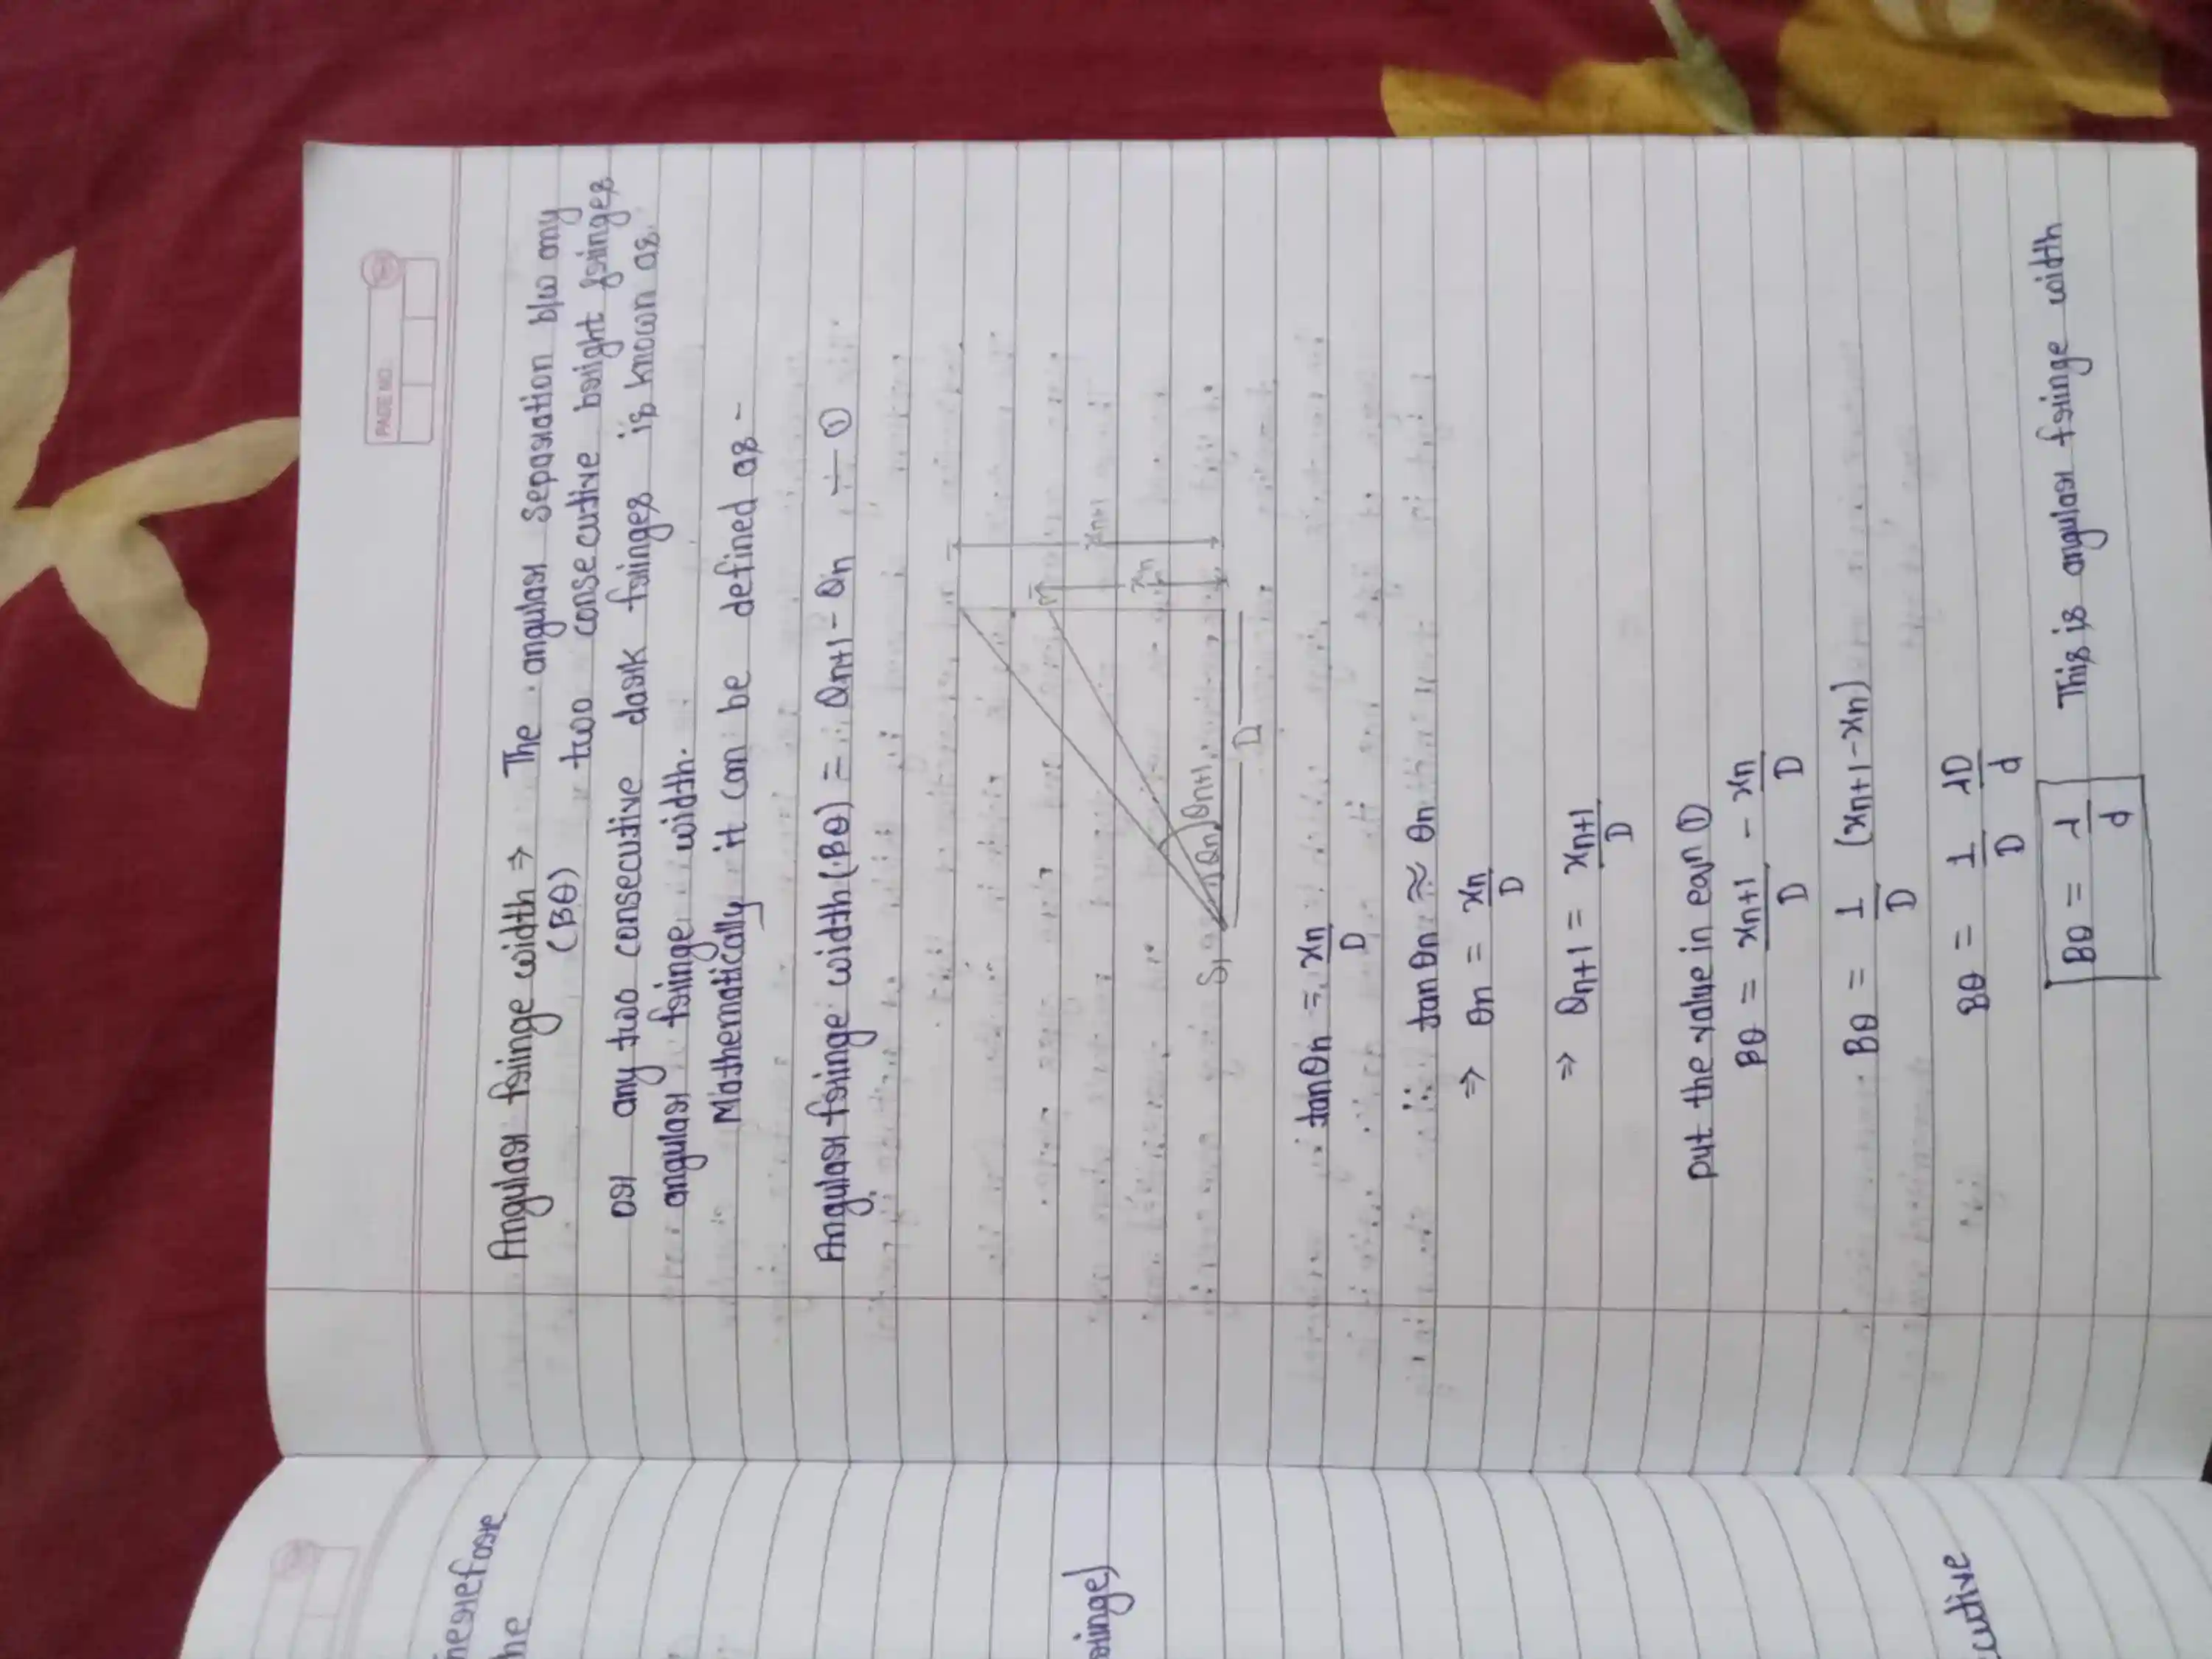 PAGE NO.
Angular fringe width ⇒ The angular separation b/w any
(βθ) two consecutive bright fringes
or any two consecutive dark fringes is known as
angular fringe width.
Mathematically it can be defined as -
Angular fringe width (βθ) = θn+1 - θn — ①
xn+1
xn
θn θn+1
S1
D
tanθn = xn/D
∵ tanθn ≈ θn
⇒ θn = xn/D
⇒ θn+1 = xn+1/D
put the value in eqn ①
βθ = xn+1/D - xn/D
βθ = 1/D (xn+1 - xn)
βθ = 1/D λD/d
βθ = λ/d This is angular fringe width
herefore
he
ringe)
cutive